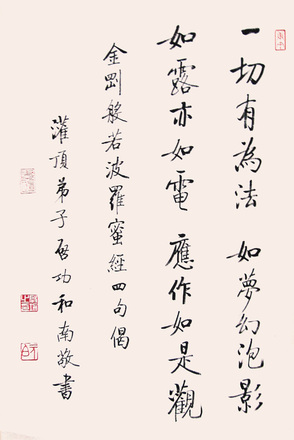 一切有為法 如夢幻泡影
如露亦如電 應作如是觀
金剛般若波羅蜜經四句偈
灌頂弟子啓功和南敬書